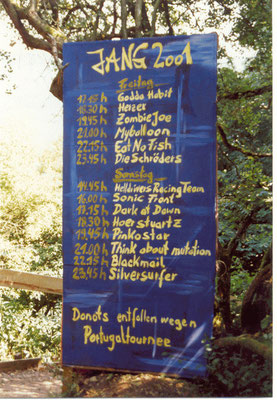 JANG 2001
Freitag
17.15 h Godda Habit
18.30 h Heizer
19.45 h Zombie Joe
21.00 h Myballoon
22.15 h Eat No Fish
23.45 h Die Schröders
Samstag
14.45 h Helldivers Racing Team
16.00 h Sonic Front
17.15 h Dark at Dawn
18.30 h Hoerstuartz
19.45 h Pinkostar
21.00 h Think about mutation
22.15 h Blackmail
23.45 h Silversurfer
Donots entfallen wegen
Portugaltournee